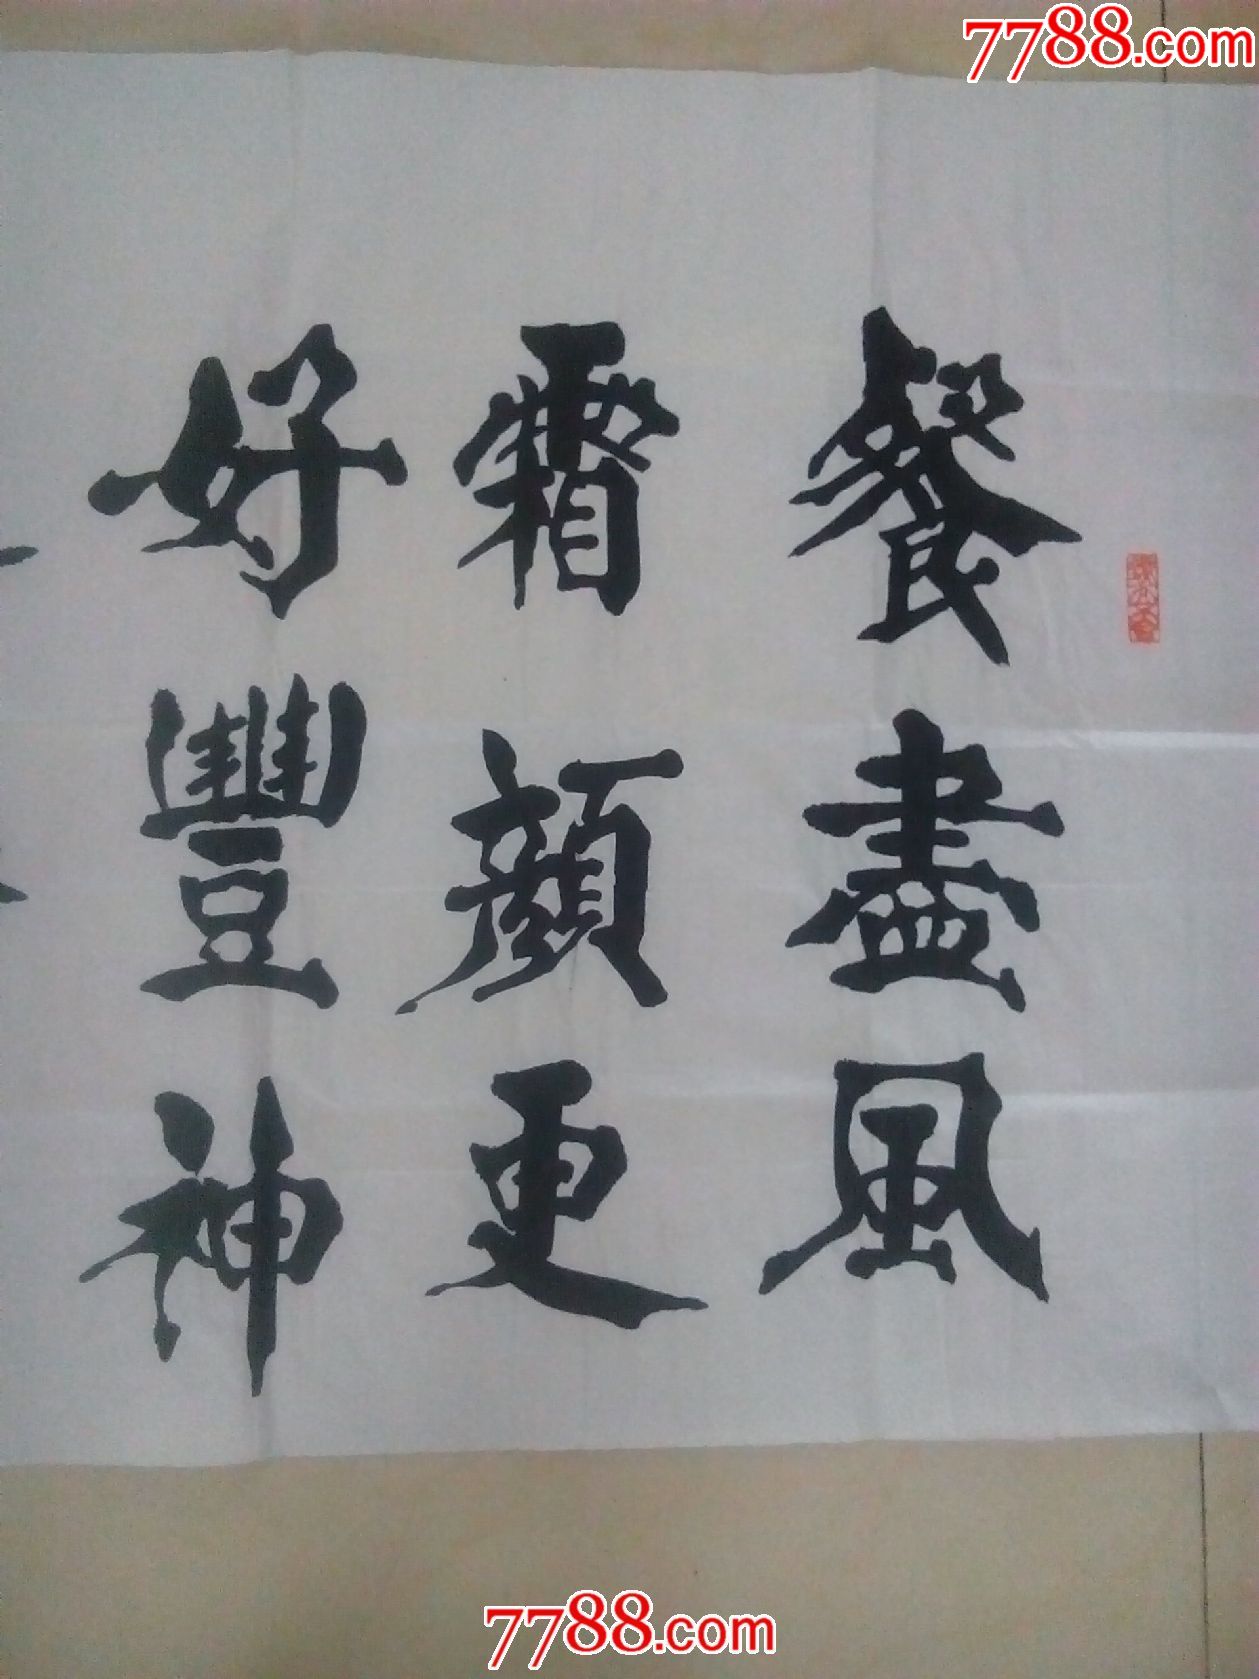 7788.com
餐盡風
霜顏更
好豐神
7788.com